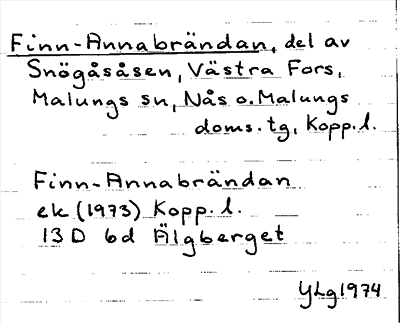 Finn-Annabrändan, del av
Snögåsåsen, Västra Fors,
Malungs sn, Nås o. Malungs
doms. tg, Kopp. l.
Finn-Annabrändan
ek (1973) Kopp. l.
13 D 6d Älgberget
YLg 1974